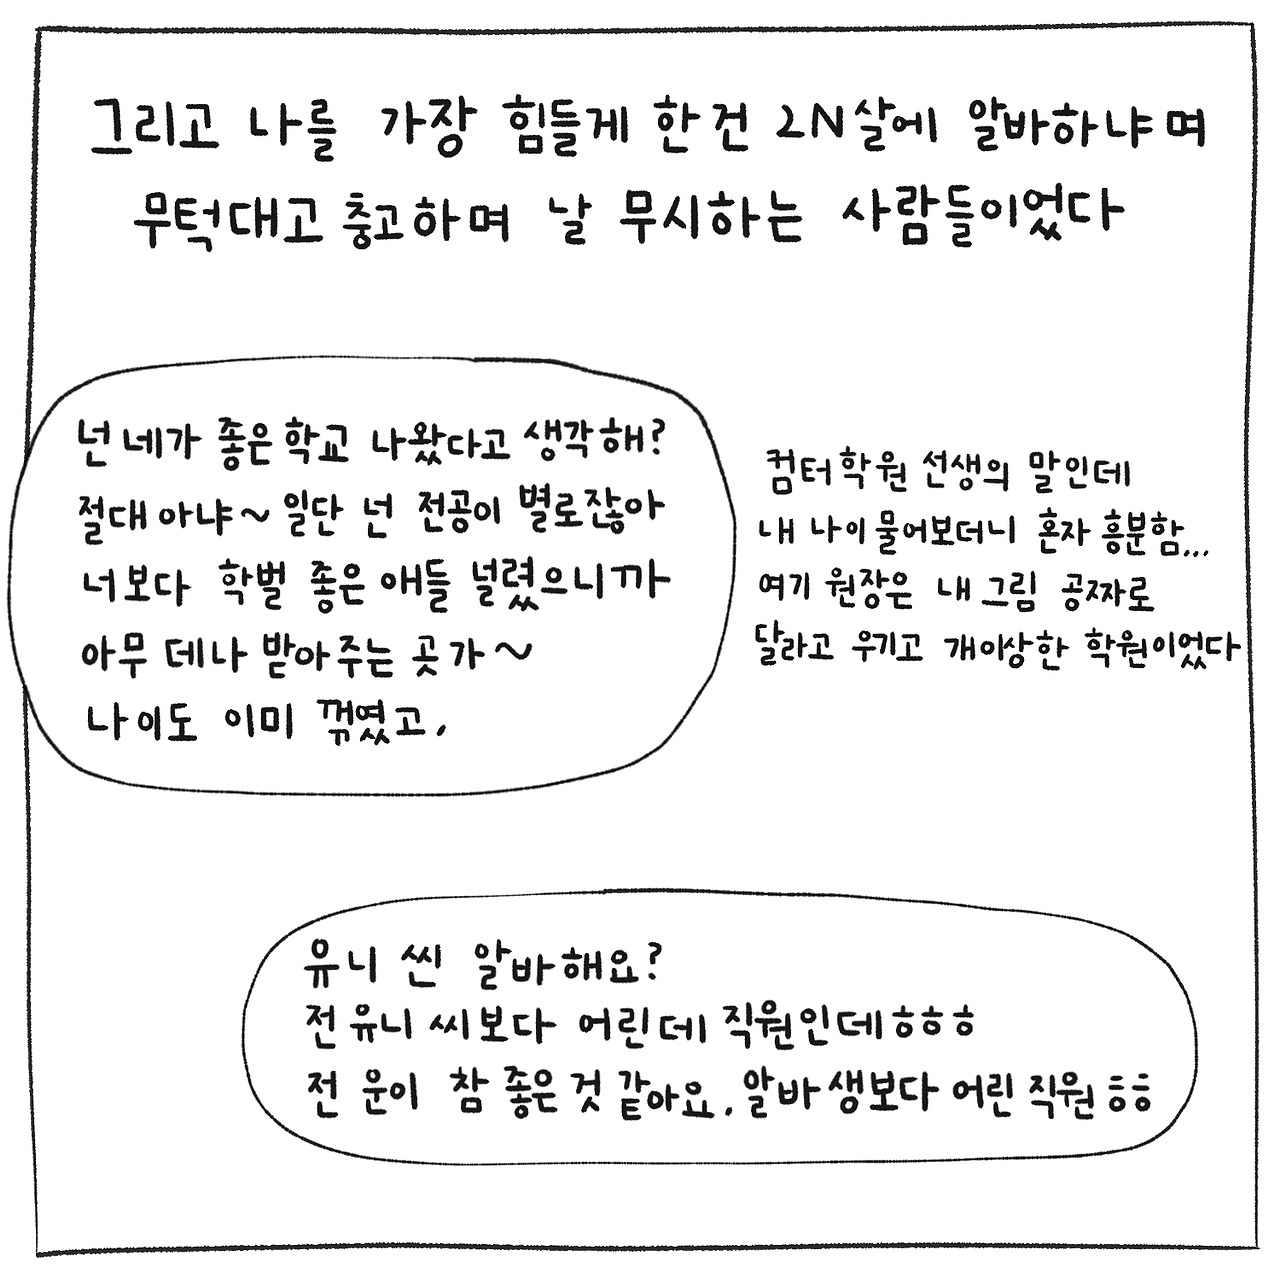 그리고 나를 가장 힘들게 한건 2N살에 알바하냐며
무턱대고 충고하며 날 무시하는 사람들이었다
넌 네가 좋은 학교 나왔다고 생각해?
절대 아냐~ 일단 넌 전공이 별로잖아
너보다 학벌 좋은 애들 널렸으니까
아무 데나 받아주는 곳 가~
나이도 이미 꺾였고,
컴터학원 선생의 말인데
내 나이 물어보더니 혼자 흥분함...
여기 원장은 내 그림 공짜로
달라고 우기고 개이상한 학원이었다
유니 씬 알바해요?
전 유니 씨보다 어린데 직원인데ㅎㅎㅎ
전 운이 참 좋은 것 같아요. 알바 생보다 어린 직원 ㅎㅎ